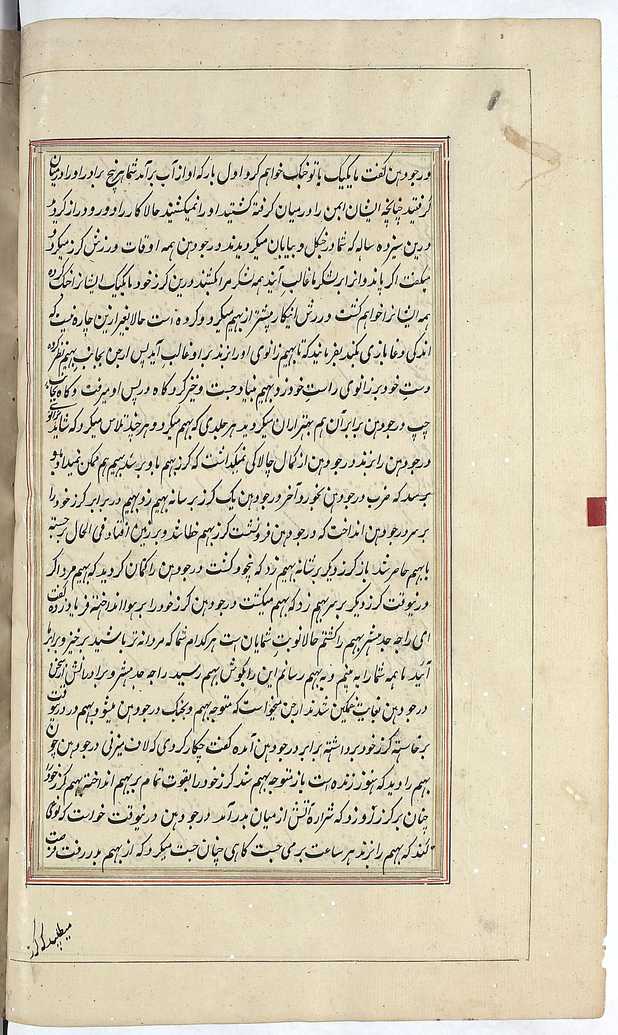 ورجودهن گفت ما یکیک با تو جنگ خواهم کرد اول بار که او از آب برآمد شما هر پنج برادر او را درمیان
گرفتید چنانچه ایشان ابهمن را درمیان گرفته کشتید او را نمیکشتید حالا کار را دور و دراز کرد
درین سیزده ساله که شما در جنگل و بیابان میگردیدند درجودهن همه اوقات ورزش گرز میکرد و
میگفت اگر پاندوان از بر لشکر ما غالب آیند همه لشکر مرا کشتند من این گرز خود با یکیک ایشان جنگ کرده
همه ایشانرا خواهم کشت و ورزش اینکار بیشتر از بهیم میکرد و کرده است حالا بغیر ازین چاره نیست که
اندکی دغابازی بکند بفرمائید که تا بهیم زانوی او را زند بر او غالب آید پس ارجن بجانب بهیم نظر کرده
دست خود بر زانوی راست خود زد و بهیم بنیاد جست و خیز کرد گاه در پس او میرفت و گاه بجانب
چپ درجودهن برابر آن هم بهتر از ان میگردید هر جلدی که بهیم میکرد و هر چند تلاش میکرد که شاید بزانوی
درجودهن را بزند درجودهن از کمال چالاکی نمیگذاشت که گرز بهیم باو برسد بهیم هم ممکن نمیداد که باو
برسد که ضرب درجودهن بخورد آخر درجودهن یک گرز بر شانه بهیم زد و بهیم در برابر گرز خود را
بر سر درجودهن انداخت که درجودهن فرو نشست گرز بهیم خطا شد و بر زمین افتاد فی الحال برجسته
با بهیم حاضر شد باز گرز دیگر بر شانه بهیم زد که بیخود گشت درجودهن را گمان گردید که بهیم مرد اگر
درینوقت گرز دیگر بر سر بهیم زد که بهیم میکشت درجودهن گرز خود را بر هوا انداخته فریاد زده گفت
ای راجه جدهشتر بهیم را کشتم حالا نوبت شمایان است هر کدام شما که مردانه‌تر باشید برخیزد و برابر
آئید تا همه شما را به بینم و به بهیم رسانم این را بگوش بهیم رسید راجه جدهشتر و برادرانش از سخن
درجودهن نهایت غمگین شدند ارجن میخواست که متوجه بهیم و بجنگ درجودهن میشود بهیم درینوقت
برخاسته گرز خود برداشته برابر درجودهن آمده گفت چکار کردی که لاف میزنی درجودهن چون
بهیم را دید که هنوز زنده است باز متوجه بهیم شد گرز خود را بقوت تمام بر بهیم انداخته بهیم گرز خود را
چنان بر گرز او زد که شراره آتش از میان بدر آمد درجودهن درینوقت خواست که
کند که بهیم را بزند هر ساعت برمی جست گاهی چنان جست میکرد که از بهیم بدر رفت فرصت
میطلبید که گرز